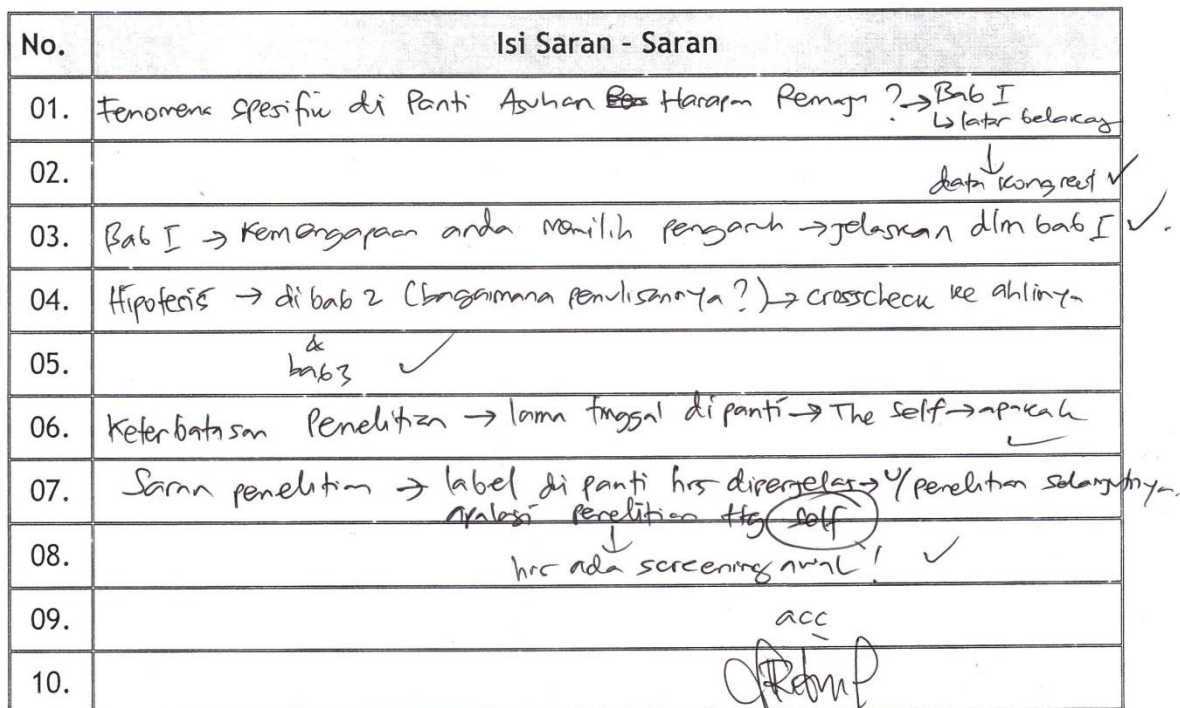 No. Isi Saran - Saran
01. Fenomena spesifik di Panti Asuhan Harapan Remaja ? → Bab I
↳ latar belakang
↓
02. data kongreet ✓
03. Bab I → Kemengapaan anda memilih pengaruh → jelaskan dlm bab I ✓.
04. Hipotesis → di bab 2 (bagaimana penulisannya?) → crosscheck ke ahlinya
05. & bab 3 ✓
06. Keterbatasan Penelitian → lama tinggal di panti → The self → apakah ✓
07. Saran penelitian → label di panti hrs diperjelas → u/ penelitian selanjutnya.
apalagi penelitian ttg self
↓
08. hrs ada screening awal ! ✓
09. acc
10.